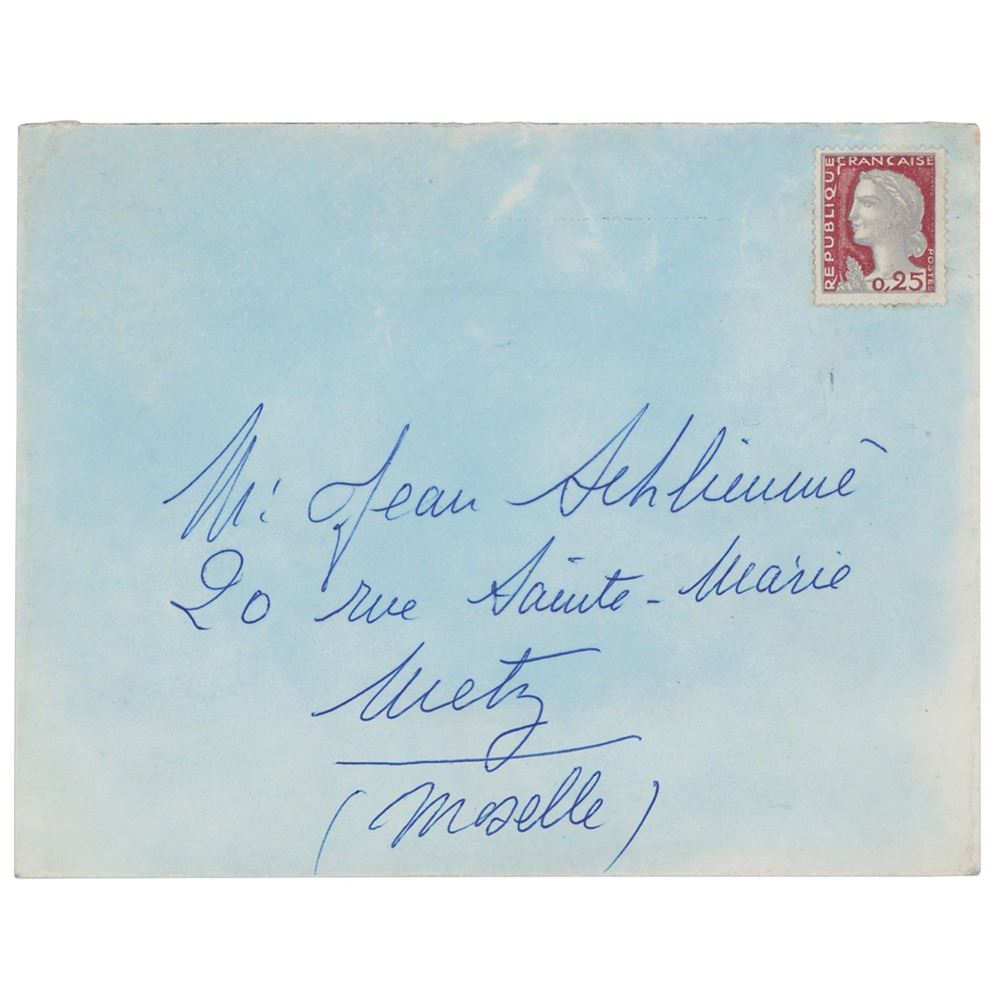 RÉPUBLIQUE FRANCAISE
POSTES
0,25
Mr: Jean
20 rue Sainte-Marie
Metz
(Moselle)